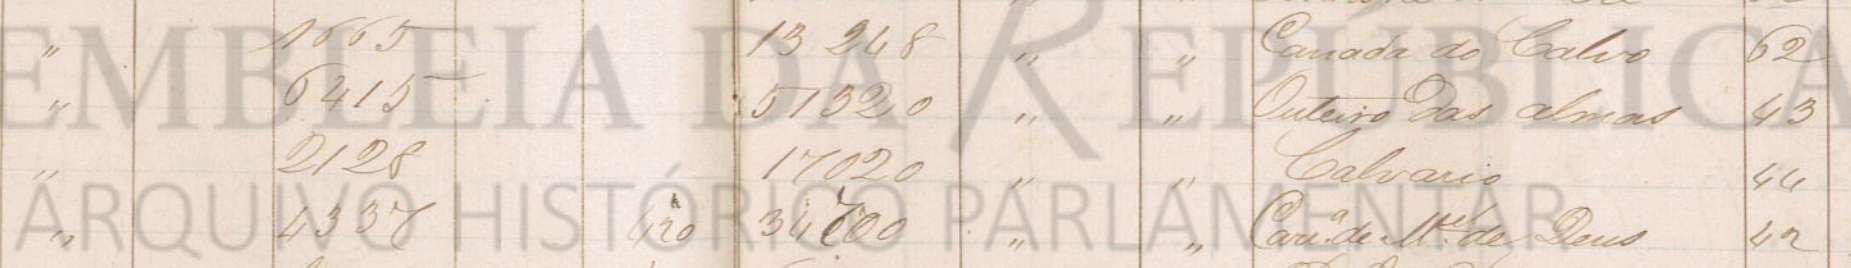 " 1665 13 248 " " Canada do Calvo 62
" 6415 51320 " " Outeiro das almas 43
" 2128 17020 " " Calvario 44
" 4337 420 34700 " " de Mel de Deus 42
EMBLEIA DA REPÚBLICA
ARQUIVO HISTÓRICO PARLAMENTAR